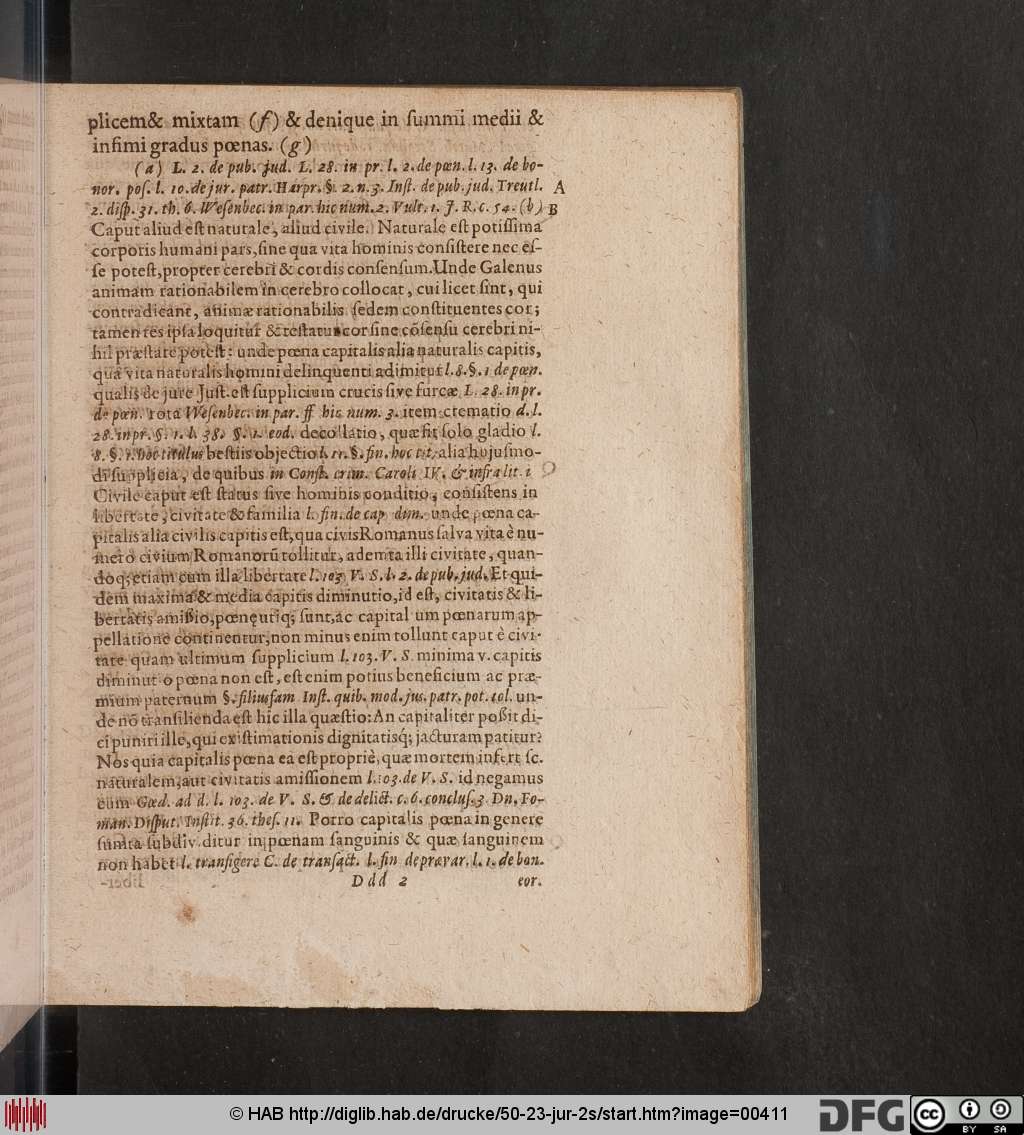 plicem& mixtam (f) & denique in ſummi medii &
infimi gradus pœnas. (g)
(a) L. 2. de pub. jud. L. 28. in pr. l. 2. de pœn. l. 13. de bo-
nor. poſ. l. 10. de jur. patr. Harpr. §. 2. n. 3. Inſt. de pub. jud. Treutl. A
2. diſp. 31. th. 6. Weſenbec. in par. hic num. 2. Vult. 1. J. R. c. 54. (b) B
Caput aliud eſt naturale, aliud civile. Naturale eſt potiſſima
corporis humani pars, ſine qua vita hominis conſiſtere nec eſ-
ſe poteſt, propter cerebri & cordis conſenſum. Unde Galenus
animam rationabilem in cerebro collocat, cui licet ſint, qui
contradicant, animæ rationabilis ſedem conſtituentes cor;
tamen res ipſa loquitur & teſtatur cor ſine cõſenſu cerebri ni-
hil præſtare poteſt: unde pœna capitalis alia naturalis capitis,
qua vita naturalis homini delinquenti adimitur l. 8. §. 1 de pœn.
qualis de jure Juſt. eſt ſupplicium crucis ſive furcæ L. 28. in pr.
de pœn. rota Weſenbec. in par. ff hic num. 3. item crematio d. l.
28. in pr. §. 1. l. 38. §. 1. eod. decollatio, quæ fit ſolo gladio l.
8. §. 1. hoc titulus beſtiis objectio l. 11. §. fin. hoc tit. alia hujuſmo-
di ſupplicia, de quibus in Conſt. crim. Caroli IV. & infra lit. i
Civile caput eſt ſtatus ſive hominis conditio, conſiſtens in
libertate, civitate & familia l. fin. de cap. dim. unde pœna ca-
pitalis alia civilis capitis eſt, qua civis Romanus ſalva vita è nu-
mero civium Romanorũ tollitur, ademta illi civitate, quan-
doq; etiam cum illa libertate l. 103. V. S. l. 2. de pub. jud. Et qui-
dem maxima & media capitis diminutio, id eſt, civitatis & li-
bertatis amiſſio, pœnę utiq; ſunt, ac capital um pœnarum ap-
pellatione continentur, non minus enim tollunt caput è civi-
tate quam ultimum ſupplicium l. 103. V. S. minima v. capitis
diminut o pœna non eſt, eſt enim potius beneficium ac præ-
mium paternum §. filiusfam Inſt. quib. mod. jus. patr. pot. tol. un-
de nõ tranſilienda eſt hic illa quæſtio: An capitaliter poſſit di-
ci puniri ille, qui exiſtimationis dignitatisq; jacturam patitur?
Nos quia capitalis pœna ea eſt propriè, quæ mortem infert ſc.
naturalem, aut civitatis amiſſionem l. 103. de V. S. id negamus
cum Gœd. ad d. l. 103. de V. S. & de delict. c. 6. concluſ. 3 Dn. Fo-
man. Diſput. Inſtit. 36. theſ. 11. Porro capitalis pœna in genere
ſumta ſubdiv ditur in pœnam ſanguinis & quæ ſanguinem
non habet l. tranſigere C. de tranſact. l. fin de prævar. l. 1. de bon.
Ddd 2 eor.
© HAB http://diglib.hab.de/drucke/50-23-jur-2s/start.htm?image=00411
DFG
cc BY SA